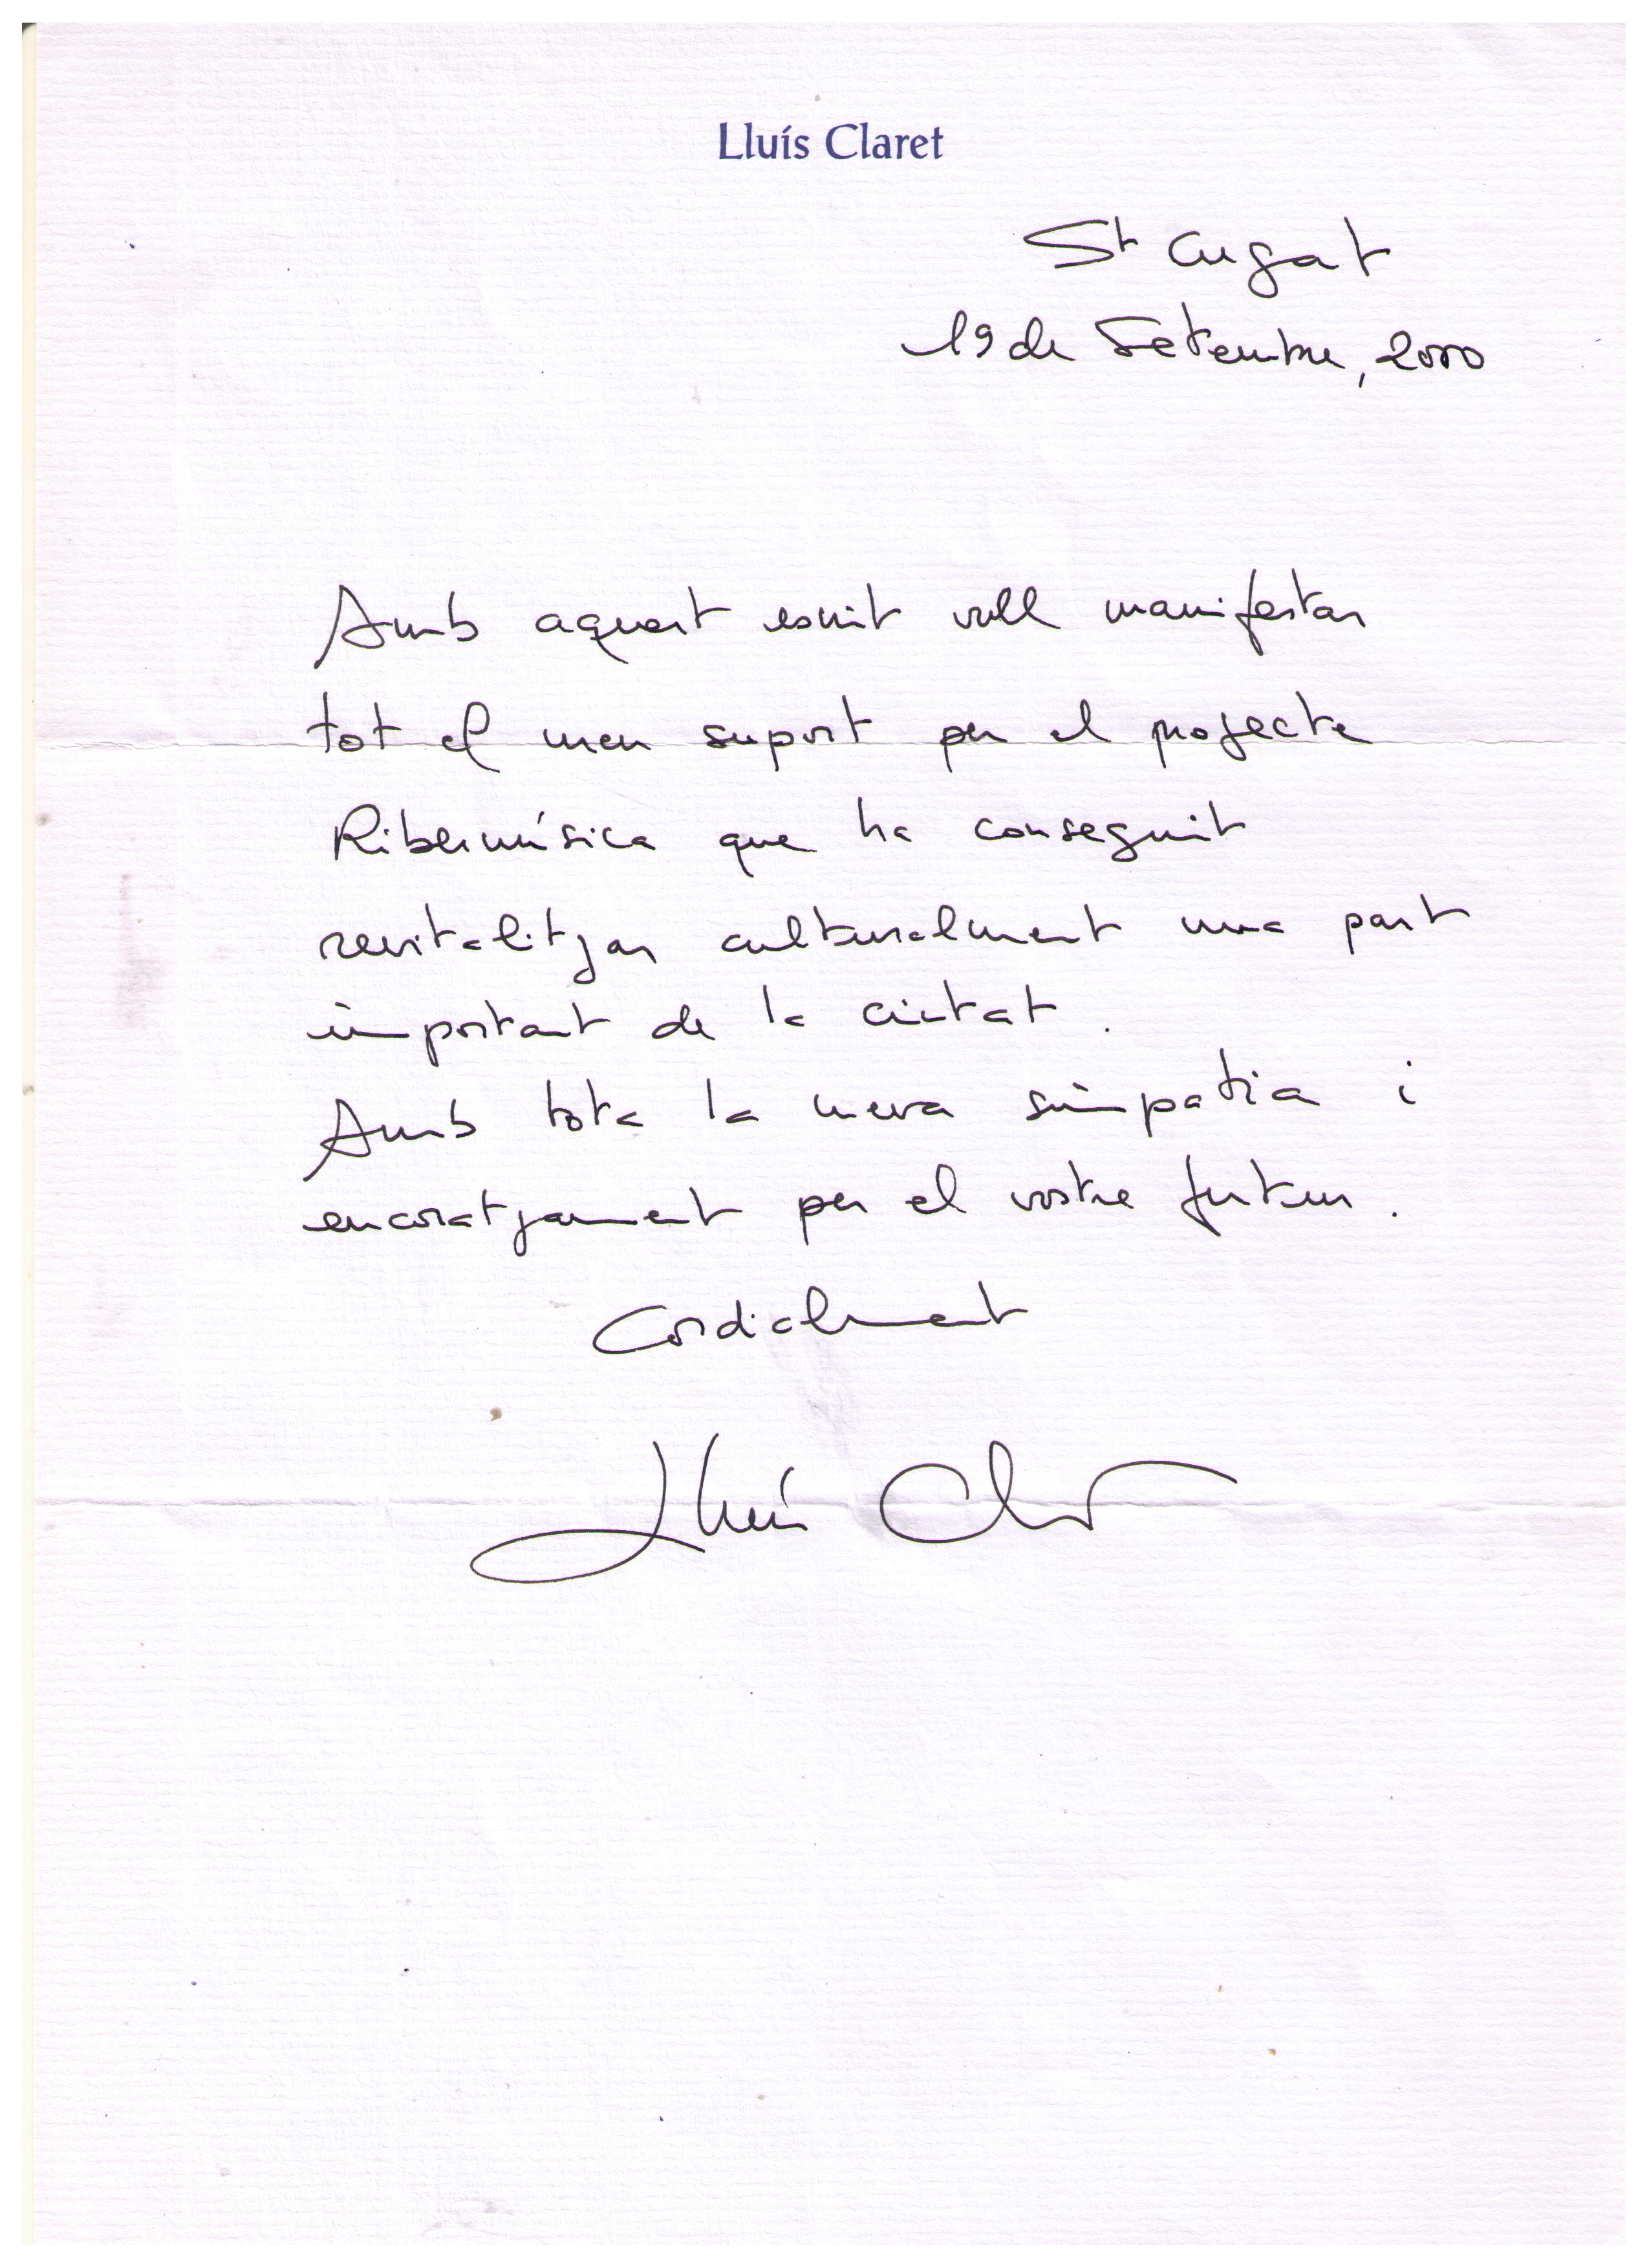 Lluís Claret
St Cugat
19 de Setembre, 2000
Amb aquest escrit vull manifestar
tot el meu suport per el projecte
Ribermúsica que ha conseguit
revitalitzar culturalment una part
important de la ciutat.
Amb tota la meva simpatia i
encoratjament per el vostre futur.
Cordialment
Lluís Claret